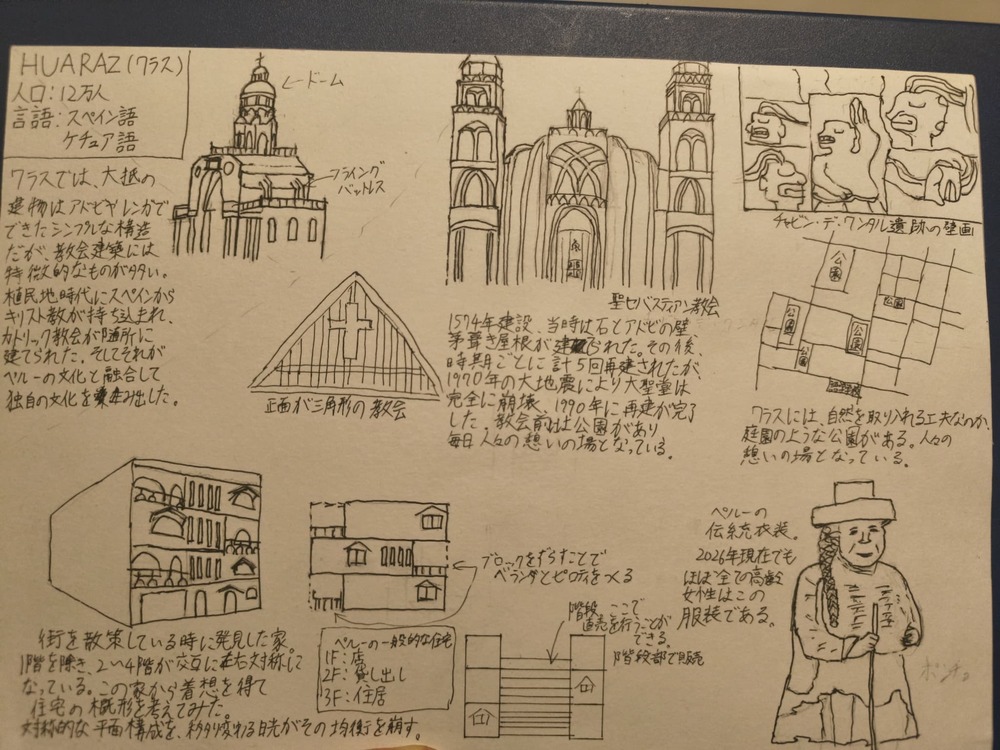 HUARAZ(ワラス)
人口：12万人
言語：スペイン語
ケチュア語
←ドーム
フライング
バットレス
ワラスでは、大抵の
建物はアドビやレンガで
できたシンプルな構造
だが、教会建築には
特徴的なものが多い。
植民地時代にスペインから
キリスト教が持ち込まれ、
カトリック教会が随所に
建てられた。そしてそれが
ペルーの文化と融合して
独自の文化を生み出した。
正面が三角形の教会
聖セバスティアン教会
1574年建設、当時は石とアドビの壁
茅葺き屋根が建てられた。その後、
時期ごとに計5回再建されたが、
1970年の大地震により大聖堂は
完全に崩壊、1990年に再建が完了
した。教会前は公園があり
毎日人々の憩いの場となっている。
チャビン・デ・ワンタル遺跡の壁画
公園
公園
公園
公園
公園
ワラスには、自然を取り入れる工夫なのか、
庭園のような公園がある。人々の
憩いの場となっている。
街を散策している時に発見した家。
1階を除き、2〜4階が交互に左右対称に
なっている。この家から着想を得て
住宅の概形を考えてみた。
対称的な平面構成を、移り変わる日光がその均衡を崩す。
ブロックをずらすことで
ベランダとピロティをつくる
ペルーの一般的な住宅
1F：店
2F：貸し出し
3F：住居
階段、ここで
直売を行うことが
できる。
階段部で販売
ペルーの
伝統衣装。
2026年現在でも
ほぼ全ての高齢
女性はこの
服装である。
ポンチョ